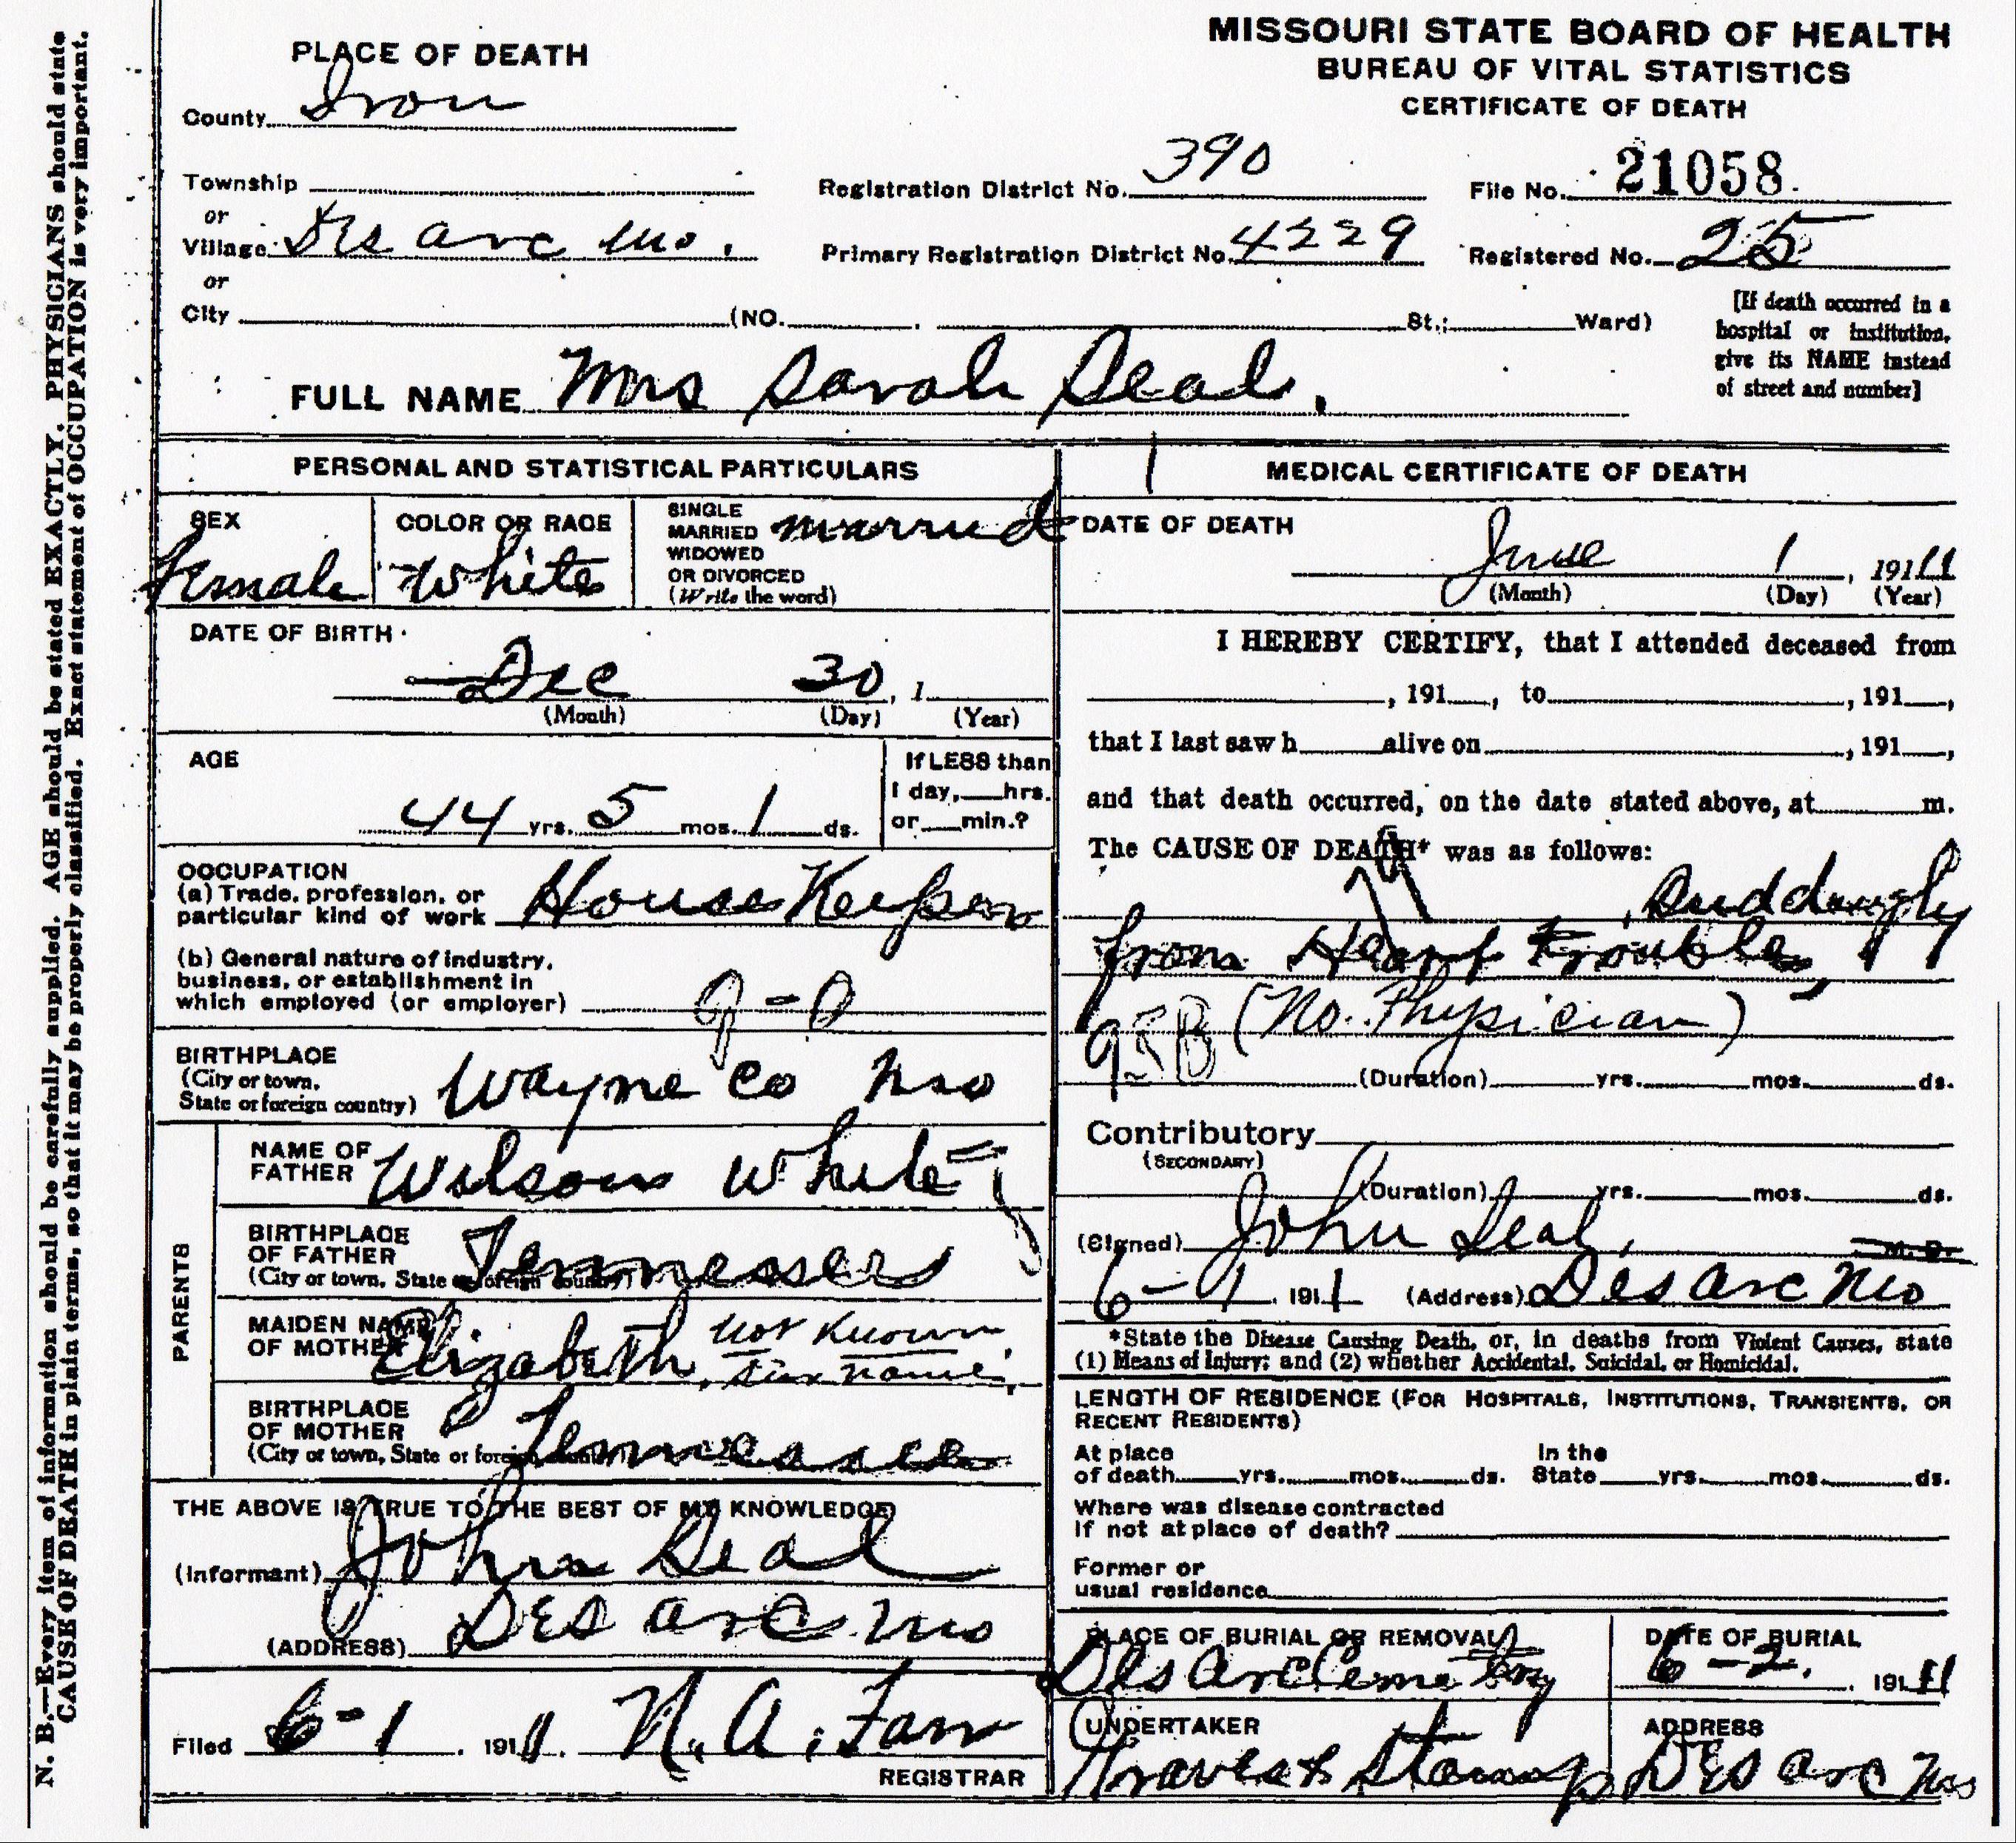 MISSOURI STATE BOARD OF HEALTH
BUREAU OF VITAL STATISTICS
CERTIFICATE OF DEATH
PLACE OF DEATH
County Iron
Township
or
Village Des arc Mo.
or
City (NO. , St.; Ward)
Registration District No. 390
File No. 21058
Primary Registration District No. 4229
Registered No. 25
[If death occurred in a
hospital or institution,
give its NAME instead
of street and number]
FULL NAME Mrs Sarah Deal.
PERSONAL AND STATISTICAL PARTICULARS
SEX
Female
COLOR OR RACE
White
SINGLE
MARRIED
WIDOWED
OR DIVORCED
(Write the word)
married
DATE OF BIRTH
Dec 30, 1
(Month) (Day) (Year)
AGE
44 yrs. 5 mos. 1 ds.
If LESS than
1 day, hrs.
or min.?
OCCUPATION
(a) Trade, profession, or
particular kind of work House Keeper
(b) General nature of industry,
business, or establishment in
which employed (or employer) 9-0
BIRTHPLACE
(City or town,
State or foreign country)
Wayne Co Mo
PARENTS
NAME OF
FATHER Wilson White
BIRTHPLACE
OF FATHER
(City or town, State or foreign country)
Tennessee
MAIDEN NAME
OF MOTHER Elizabeth, not known
name
BIRTHPLACE
OF MOTHER
(City or town, State or foreign country)
Tennessee
THE ABOVE IS TRUE TO THE BEST OF MY KNOWLEDGE
(Informant) John Deal
(ADDRESS) Des arc Mo
Filed 6-1, 1911. N. A. Farr
REGISTRAR
MEDICAL CERTIFICATE OF DEATH
DATE OF DEATH
June 1, 1911
(Month) (Day) (Year)
I HEREBY CERTIFY, that I attended deceased from
, 191 , to , 191 ,
that I last saw h alive on , 191 ,
and that death occurred, on the date stated above, at m.
The CAUSE OF DEATH* was as follows:
from Heart trouble,
(No. Physician)
(Duration) yrs. mos. ds.
Contributory
(SECONDARY)
(Duration) yrs. mos. ds.
(Signed) John Deal, M. D.
6-1, 1911 (Address) Des Arc Mo
*State the Disease Causing Death, or, in deaths from Violent Causes, state
(1) Means of Injury; and (2) whether Accidental, Suicidal, or Homicidal.
LENGTH OF RESIDENCE (FOR HOSPITALS, INSTITUTIONS, TRANSIENTS, OR
RECENT RESIDENTS)
At place
of death yrs. mos. ds.
In the
State yrs. mos. ds.
Where was disease contracted
if not at place of death?
Former or
usual residence
PLACE OF BURIAL OR REMOVAL
Des Arc Cemetery
DATE OF BURIAL
6-2, 1911
UNDERTAKER
ADDRESS
Des arc Mo
N. B.—Every item of information should be carefully supplied. AGE should be stated EXACTLY. PHYSICIANS should state
CAUSE OF DEATH in plain terms, so that it may be properly classified. Exact statement of OCCUPATION is very important.